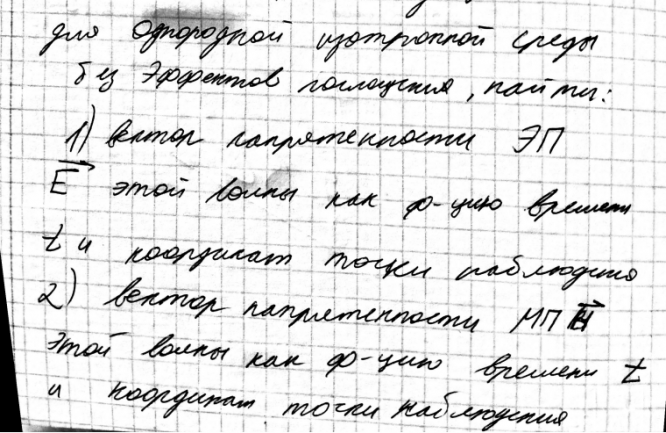 для однородной изотропной среды
без эффектов поглощения, найти:
1) вектор напряженности ЭП
E этой волны как ф-цию времени
t и координат точки наблюдения
2) вектор напряженности МП H
этой волны как ф-цию времени t
и координат точки наблюдения